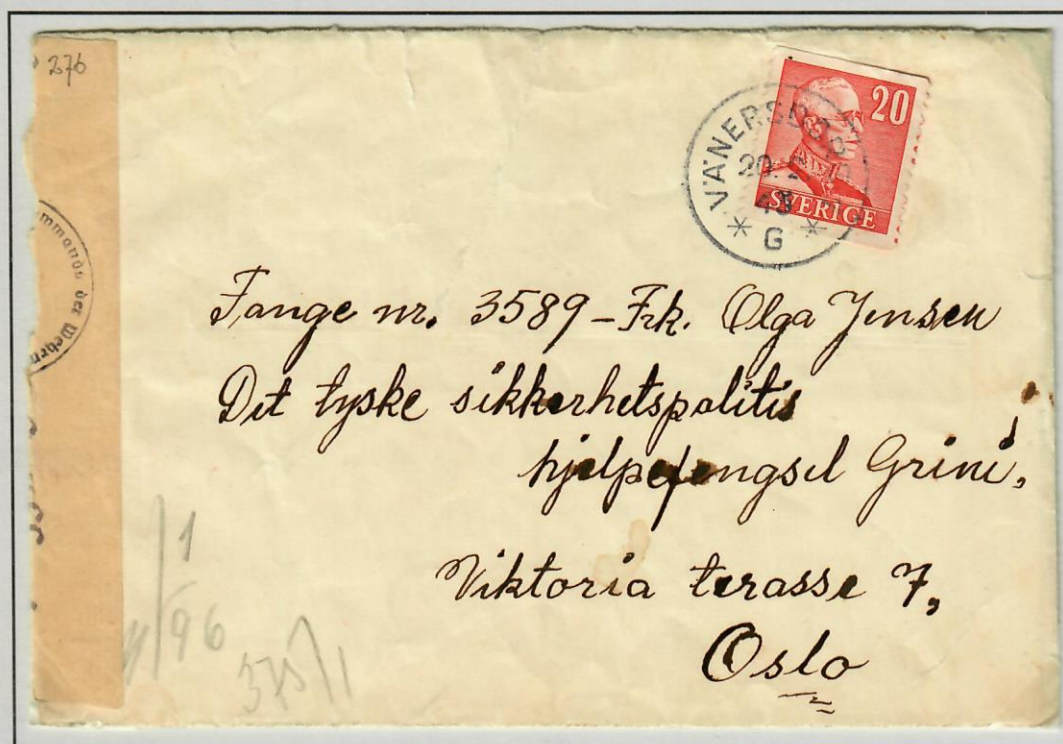 276
20
SVERIGE
VÄNERSBORG
20.
43
G
ommando der Wehrm
Fange nr. 3589 - Frk. Olga Jensen
Det tyske sikkerhetspolitis
hjelpefengsel Grini,
Viktoria terasse 7,
Oslo
1
96
375/1